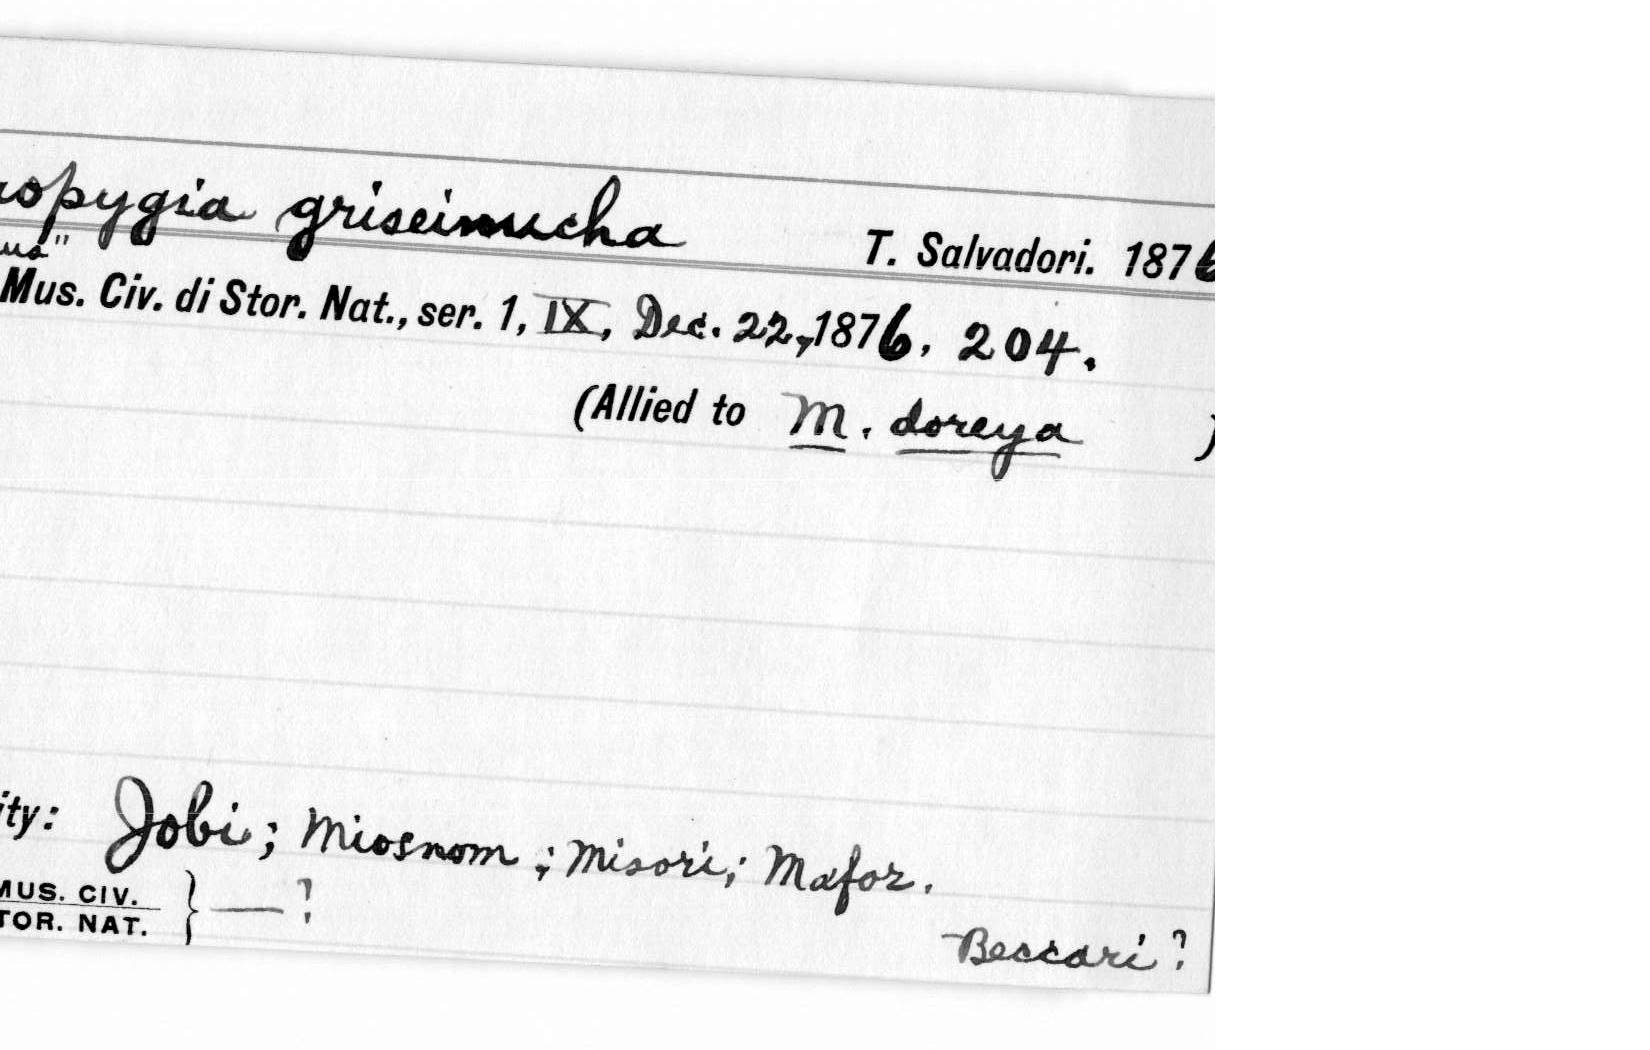 opygia griseinucha T. Salvadori. 1876
us"
Mus. Civ. di Stor. Nat., ser. 1, IX, Dec. 22, 1876. 204.
(Allied to M. doreya )
ity: Jobi; Miosnom; Misori; Mafor.
MUS. CIV. } — ?
TOR. NAT.
Beccari?